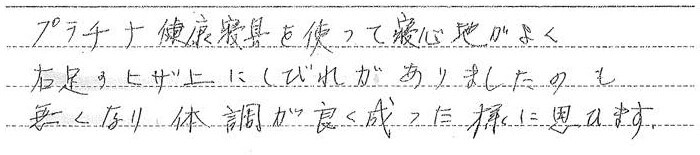 プラチナ健康寝具を使って寝心地がよく
右足のヒザ上にしびれがありましたのも
無くなり体調が良く成った様に思います。